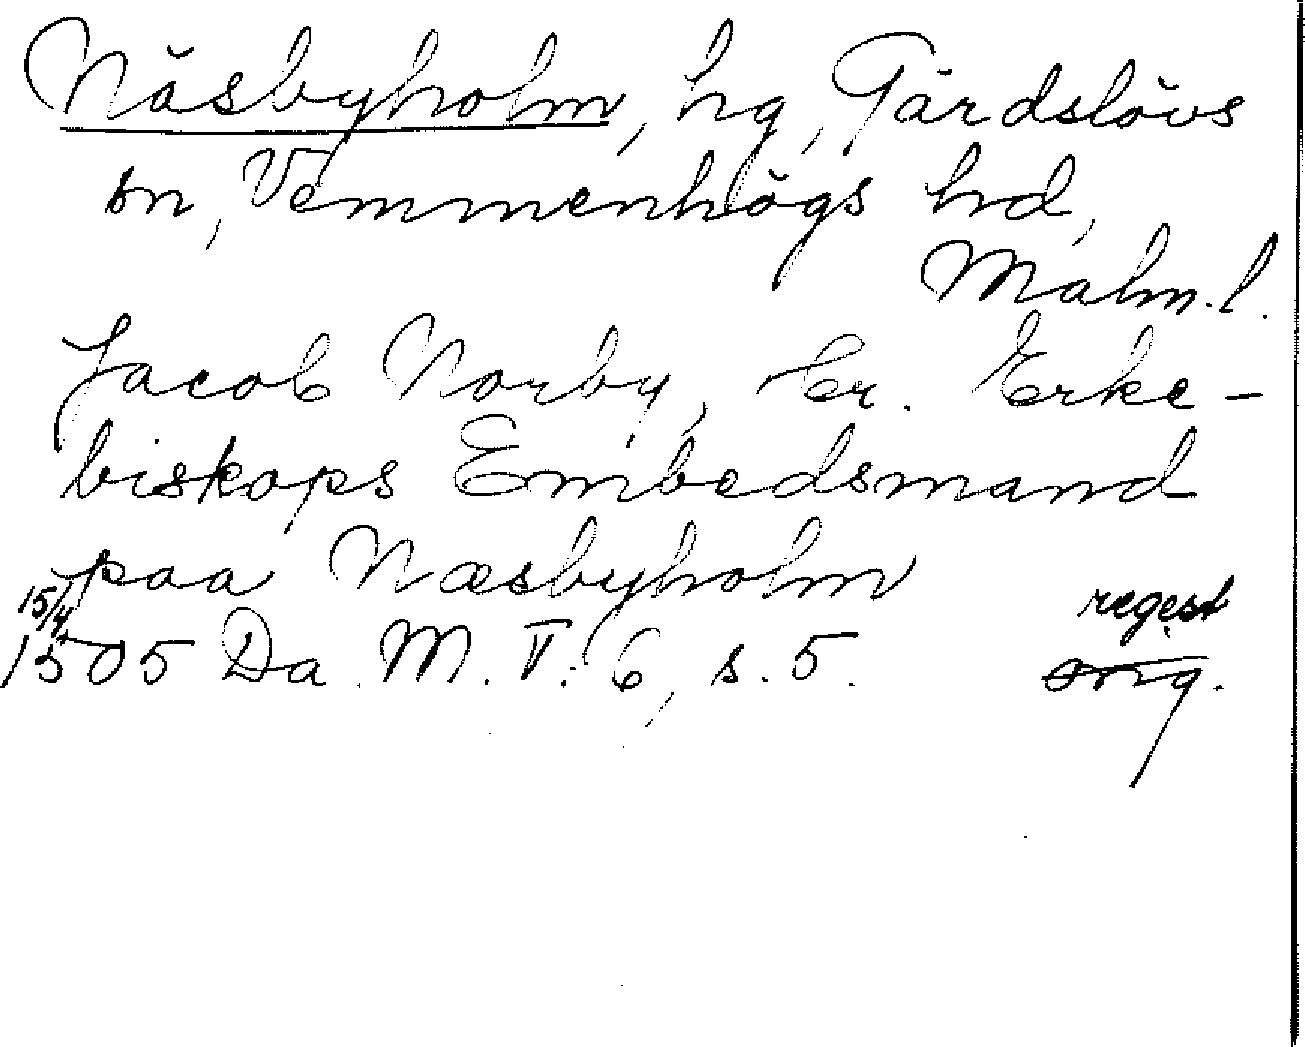 Näsbyholm, hg, Gärdslövs
sn, Vemmenhögs hd,
Malm.l.
Jacob Norby, Er. Erke-
biskops Embedsmand
paa Næsbyholm
15/4 regest
1505 Da. M. V: 6, s. 5. orig.